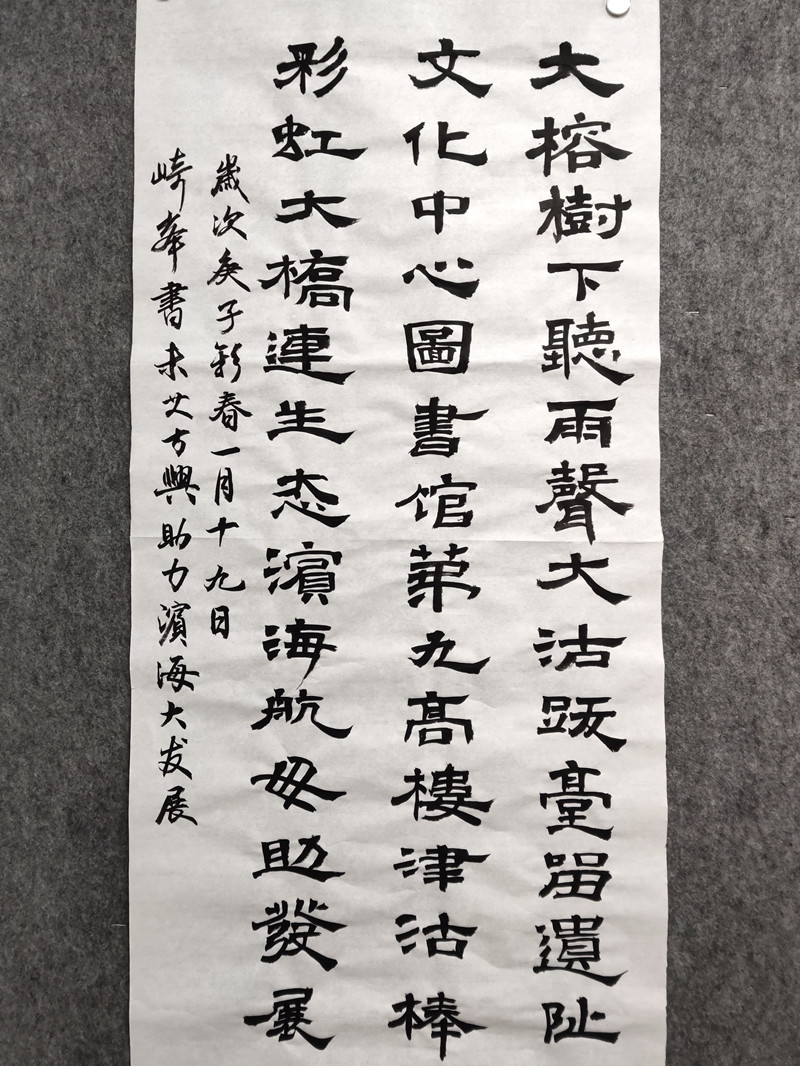 大榕樹下聽雨聲大沽䟦臺畱遺址
文化中心圖書馆苐九高樓津沽棒
彩虹大橋連生态濱海航母助發展
歲次庚子新春一月十九日
崎峯書未艾方興助力濱海大发展